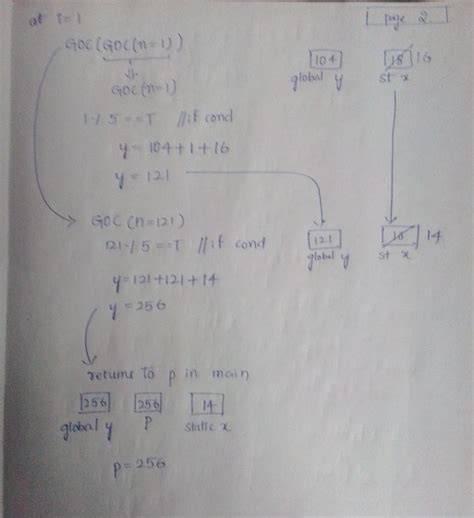 at i=1
page 2
GOC(GOC(n=1))
104
18 16
global y
st x
GOC(n=1)
1 % 5 == T //if cond
y = 104+1+16
y = 121
GOC (n=121)
121 % 5 == T //if cond
121
16 14
global y
st x
y = 121+121+14
y = 256
returns to p in main
256 256 14
global y p static x
p = 256